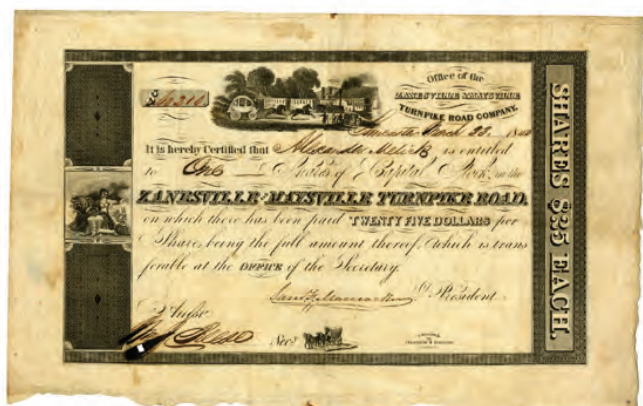 Office of the
ZANESVILLE & MAYSVILLE
TURNPIKE ROAD COMPANY.
Lancaster March 23. 1840
It is hereby Certified that Alexander is entitled
to One Shares of Capital Stock in the
ZANESVILLE & MAYSVILLE TURNPIKE ROAD,
on which there has been paid TWENTY FIVE DOLLARS per
Share, being the full amount thereof. Which is trans
ferable at the OFFICE of the Secretary.
President
Secy
SHARES $25 EACH.